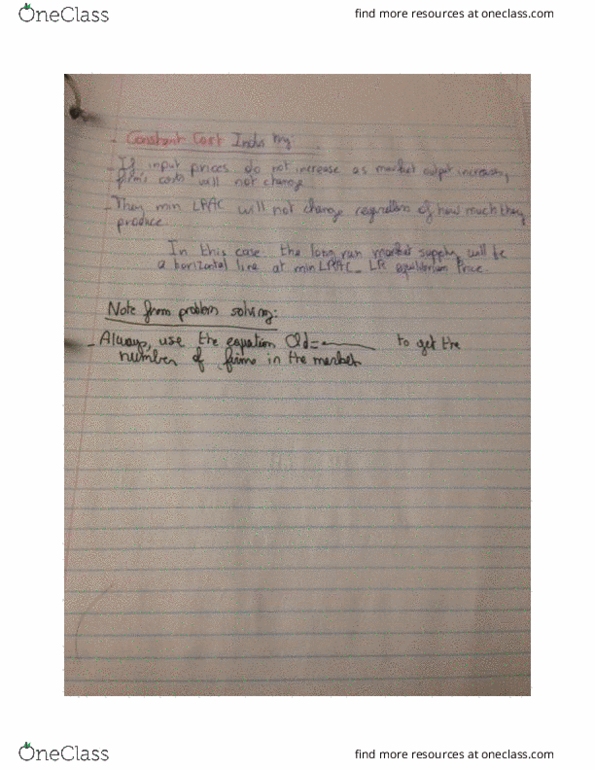 OneClass
find more resources at oneclass.com
- Constant Cost Industry:
- If input prices do not increase as market output increases,
firm's costs will not change
- They min LRAC will not change regardless of how much they
produce
In this case: the long run market supply will be
a horizontal line at min LRAC = LR equilibrium Price.
Note from problem solving:
- Always, use the equation Qd= to get the
number of firms in the market
OneClass
find more resources at oneclass.com